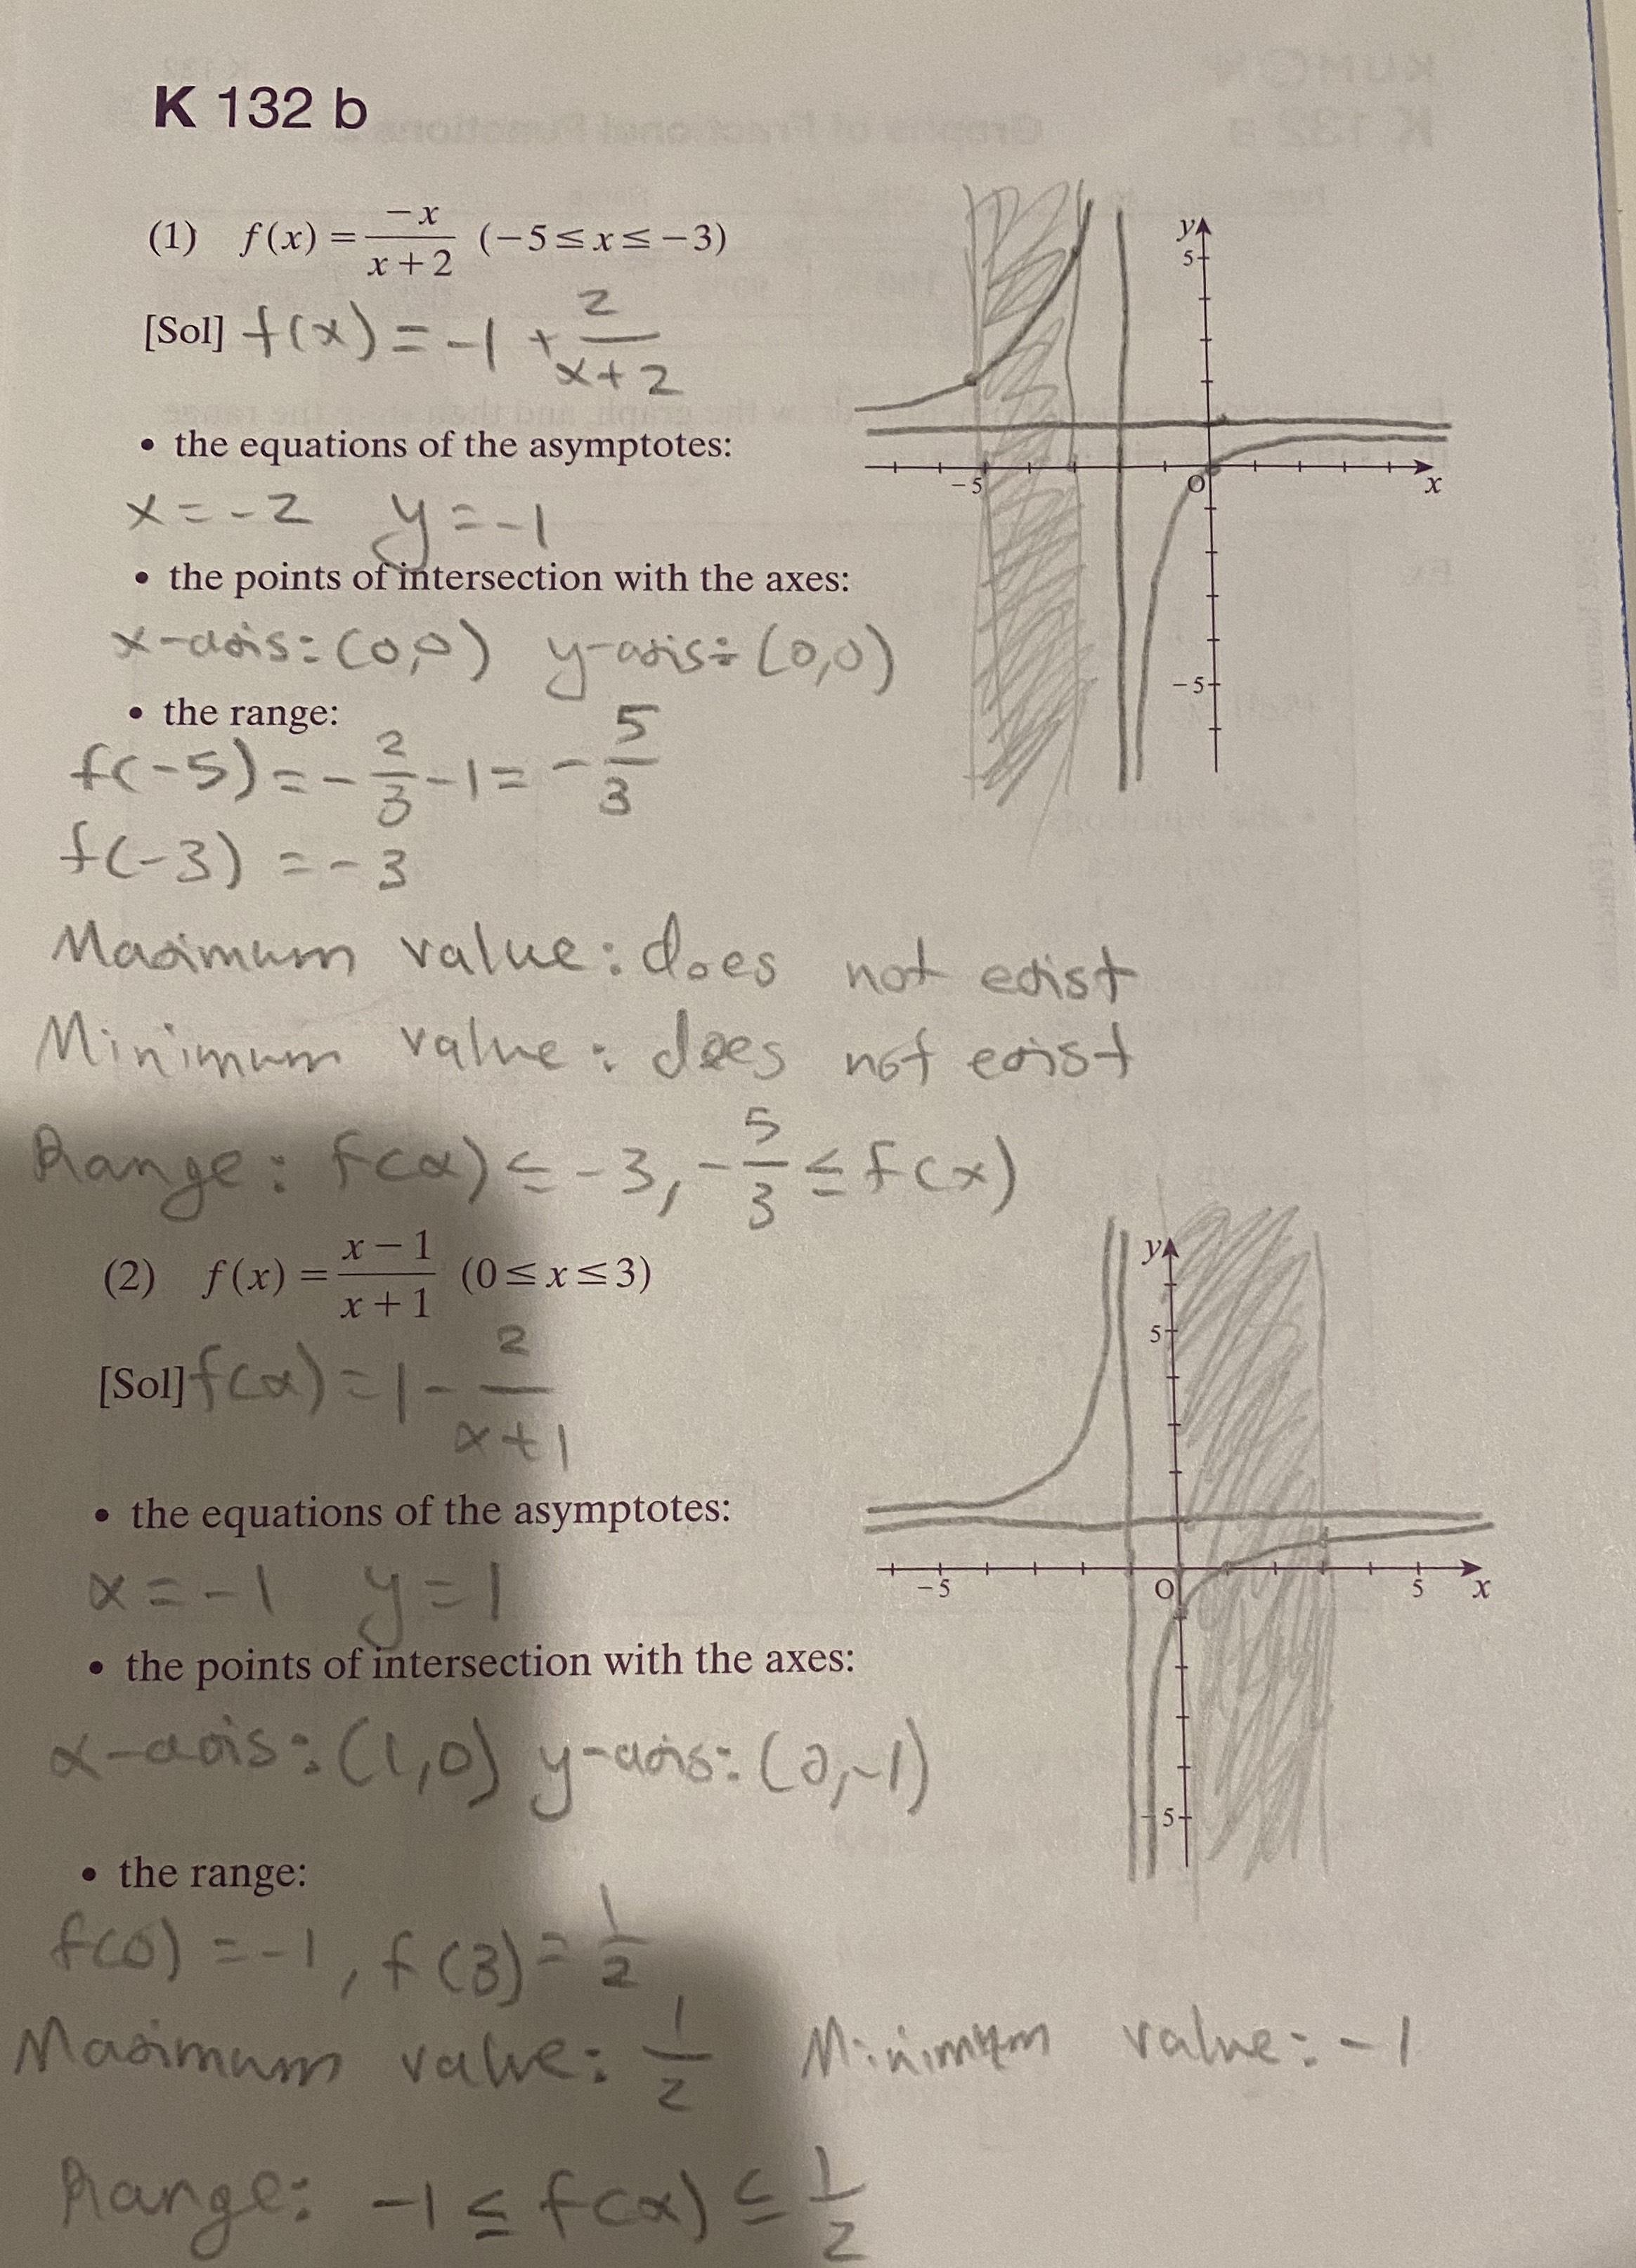 K 132 b
(1) f(x) = -x/(x+2) (-5 ≤ x ≤ -3)
[Sol] f(x) = -1 + 2/(x+2)
• the equations of the asymptotes:
x = -2 y = -1
• the points of intersection with the axes:
x-axis: (0,0) y-axis: (0,0)
• the range:
f(-5) = -2/3 - 1 = -5/3
f(-3) = -3
Maximum value: does not exist
Minimum value: does not exist
Range: f(x) ≤ -3, -5/3 ≤ f(x)
y
5
-5
O
x
-5
(2) f(x) = (x-1)/(x+1) (0 ≤ x ≤ 3)
[Sol] f(x) = 1 - 2/(x+1)
• the equations of the asymptotes:
x = -1 y = 1
• the points of intersection with the axes:
x-axis: (1,0) y-axis: (0,-1)
• the range:
f(0) = -1, f(3) = 1/2
Maximum value: 1/2 Minimum value: -1
Range: -1 ≤ f(x) ≤ 1/2
y
5
-5
O
5
x
-5